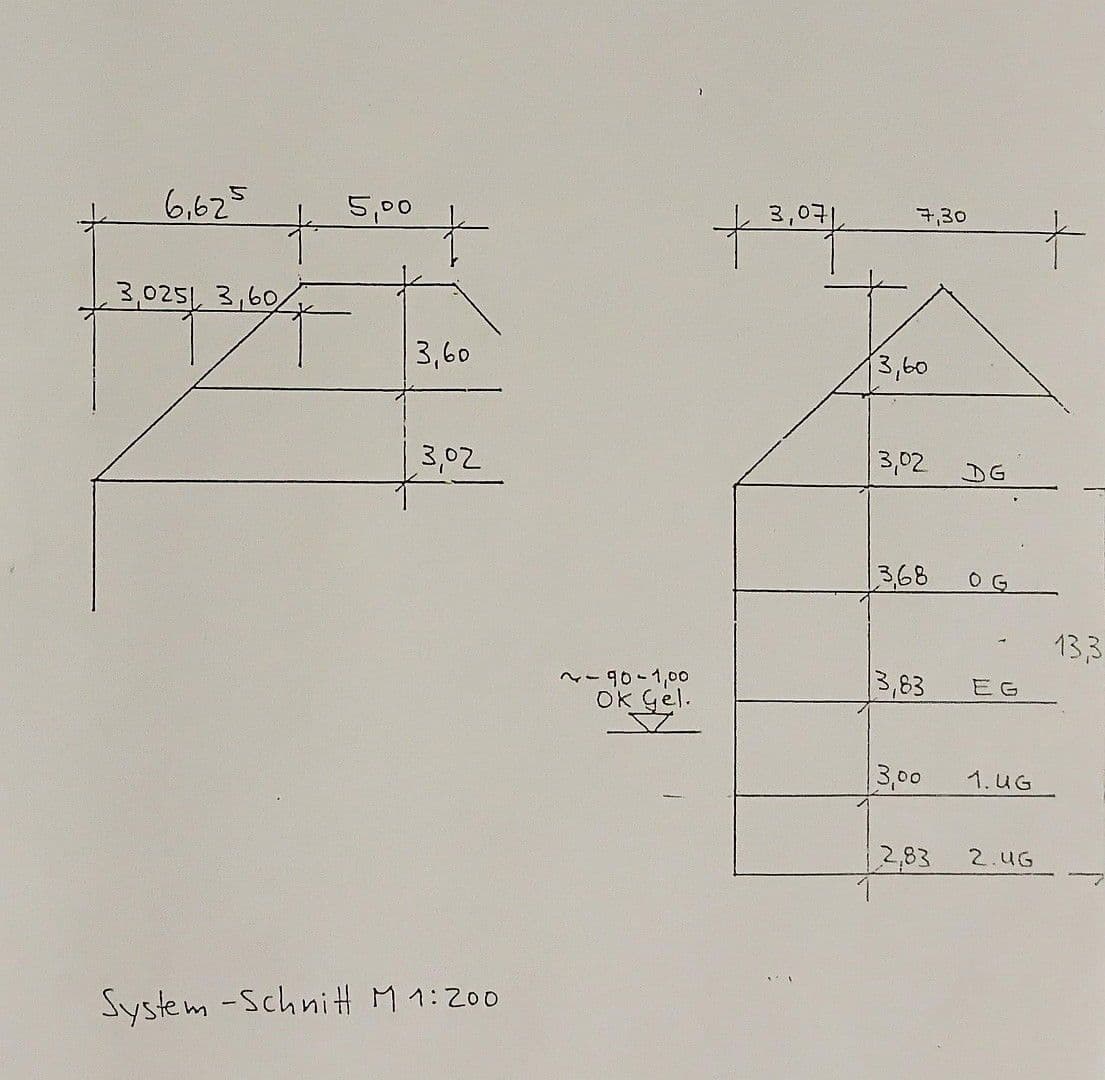 6,62⁵ 5,00
3,025 3,60
3,60
3,02
3,07 7,30
3,60
3,02 DG
3,68 OG
13,3
3,83 EG
~-90-1,00
OK Gel.
3,00 1.UG
2,83 2.UG
System-Schnitt M 1:200